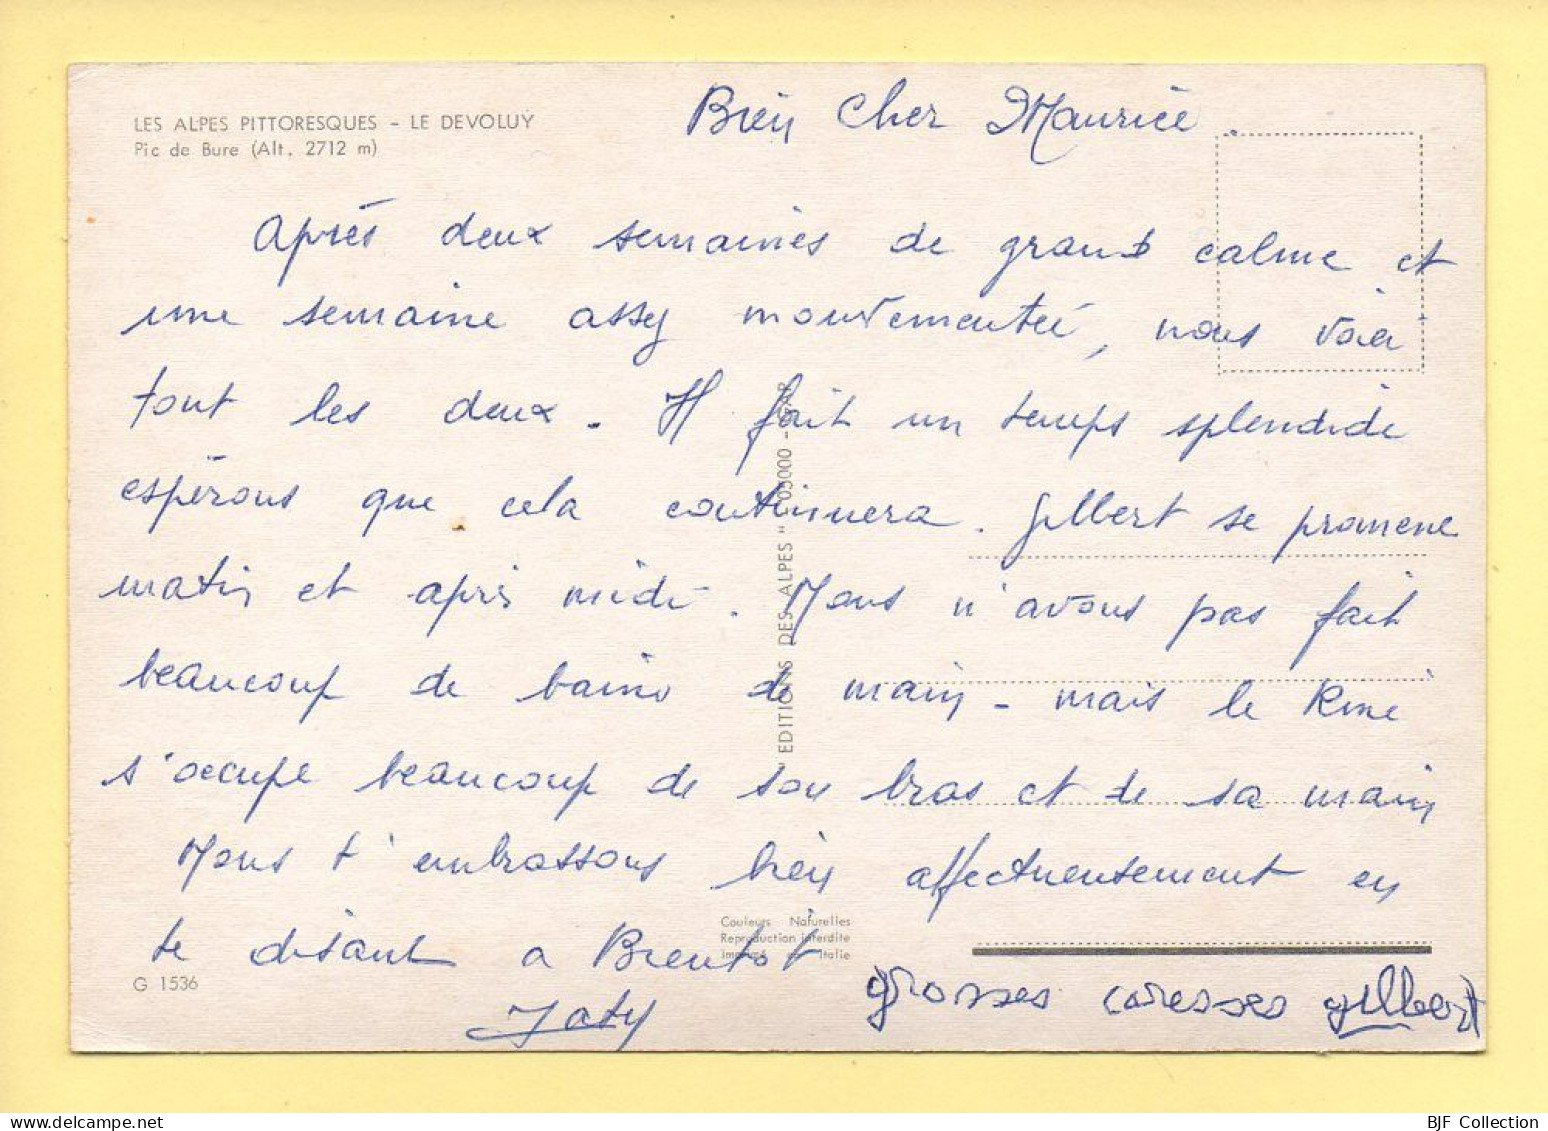 LES ALPES PITTORESQUES - LE DEVOLUY
Pic de Bure (Alt. 2712 m)
Bien Cher Maurice.
Après deux semaines de grand calme et
une semaine assez mouvementée, nous voici
tout les deux. Il fait un temps splendide
espérons que cela continuera. Gilbert se promene
matin et après midi. Nous n'avons pas fait
beaucoup de bains de main - mais le Kiné
s'occupe beaucoup de son bras et de sa main
Nous t'embrassons bien affectueusement en
te disant a Bientot
Jaty
grosses caresses gilbert
"EDITIONS DES ALPES" - 05000 - GAP
Couleurs Naturelles
Reproduction interdite
Imprimé en Italie
G 1536
BJF Collection